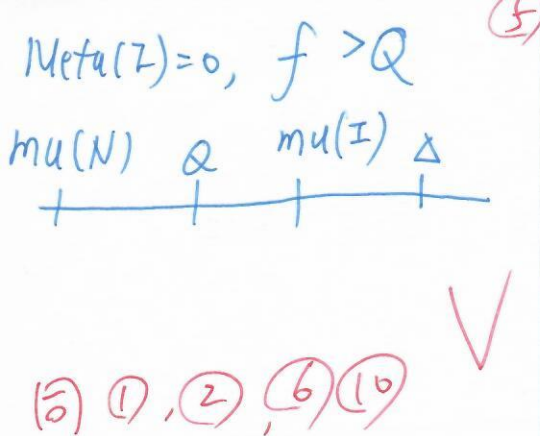 ⑤
Meta(Z)=0, f >Q
mu(N) Q mu(I) Δ
①, ②, ⑥ ⑩